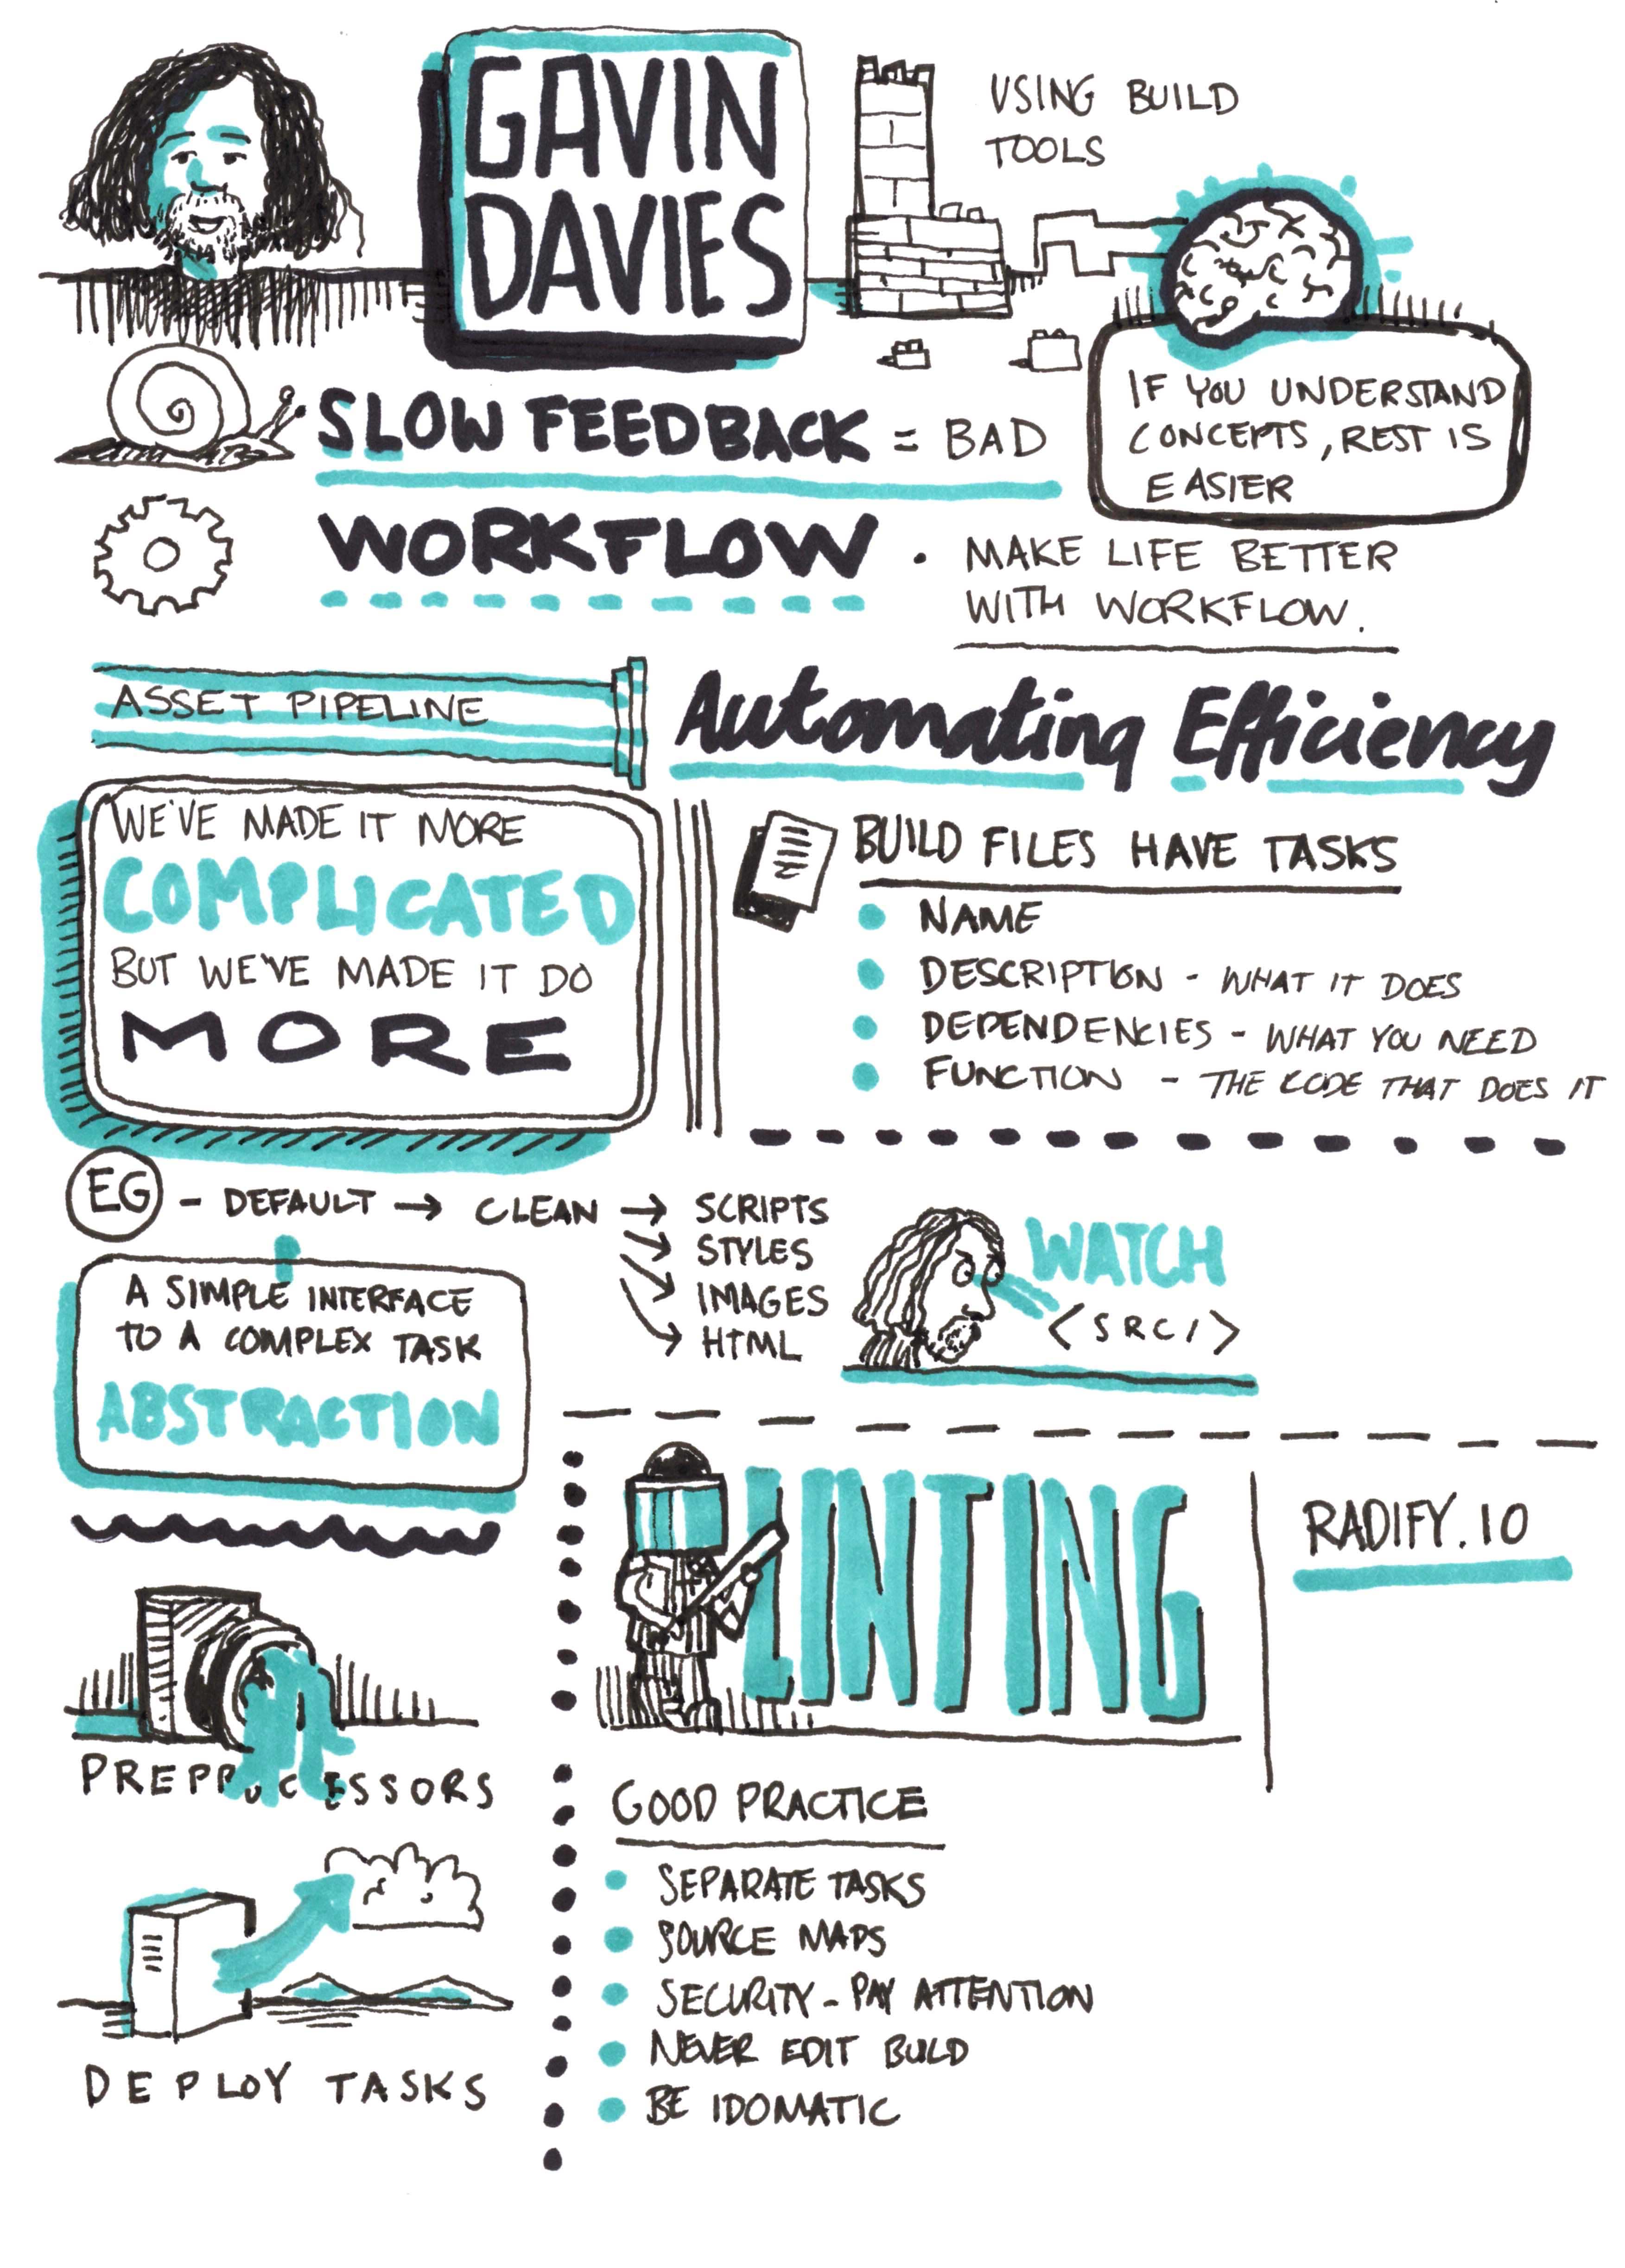 GAVIN
DAVIES
USING BUILD
TOOLS
IF YOU UNDERSTAND
CONCEPTS, REST IS
EASIER
SLOW FEEDBACK = BAD
WORKFLOW • MAKE LIFE BETTER
WITH WORKFLOW.
ASSET PIPELINE
Automating Efficiency
WE'VE MADE IT MORE
COMPLICATED
BUT WE'VE MADE IT DO
MORE
BUILD FILES HAVE TASKS
• NAME
• DESCRIPTION - WHAT IT DOES
• DEPENDENCIES - WHAT YOU NEED
• FUNCTION - THE CODE THAT DOES IT
EG - DEFAULT → CLEAN → SCRIPTS
→ STYLES
→ IMAGES
→ HTML
A SIMPLE INTERFACE
TO A COMPLEX TASK
ABSTRACTION
WATCH
<SRC/>
LINTING
RADIFY.IO
PREPROCESSORS
DEPLOY TASKS
GOOD PRACTICE
• SEPARATE TASKS
• SOURCE MAPS
• SECURITY - PAY ATTENTION
• NEVER EDIT BUILD
• BE IDOMATIC